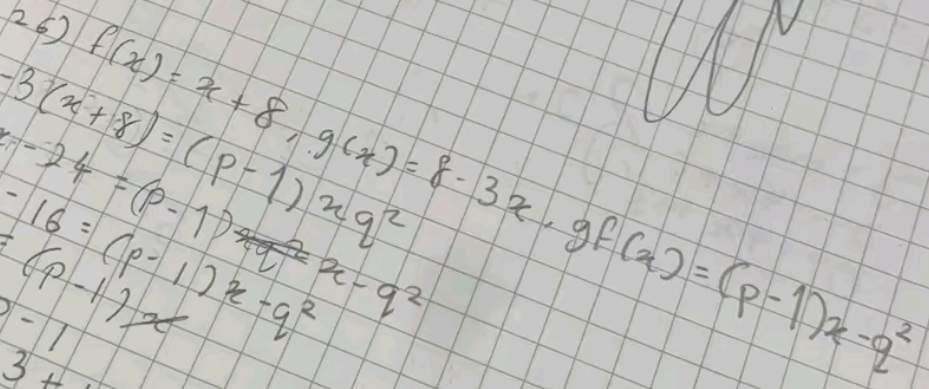 26) f(x) = x + 8, g(x) = 8 - 3x. gf(x) = (p-1)x - q²
-3(x+8) = (p-1) xq²
-24 = (p-1) x - q²
-16 = (p-1)x - q²
= (p-1)
-1
3 +